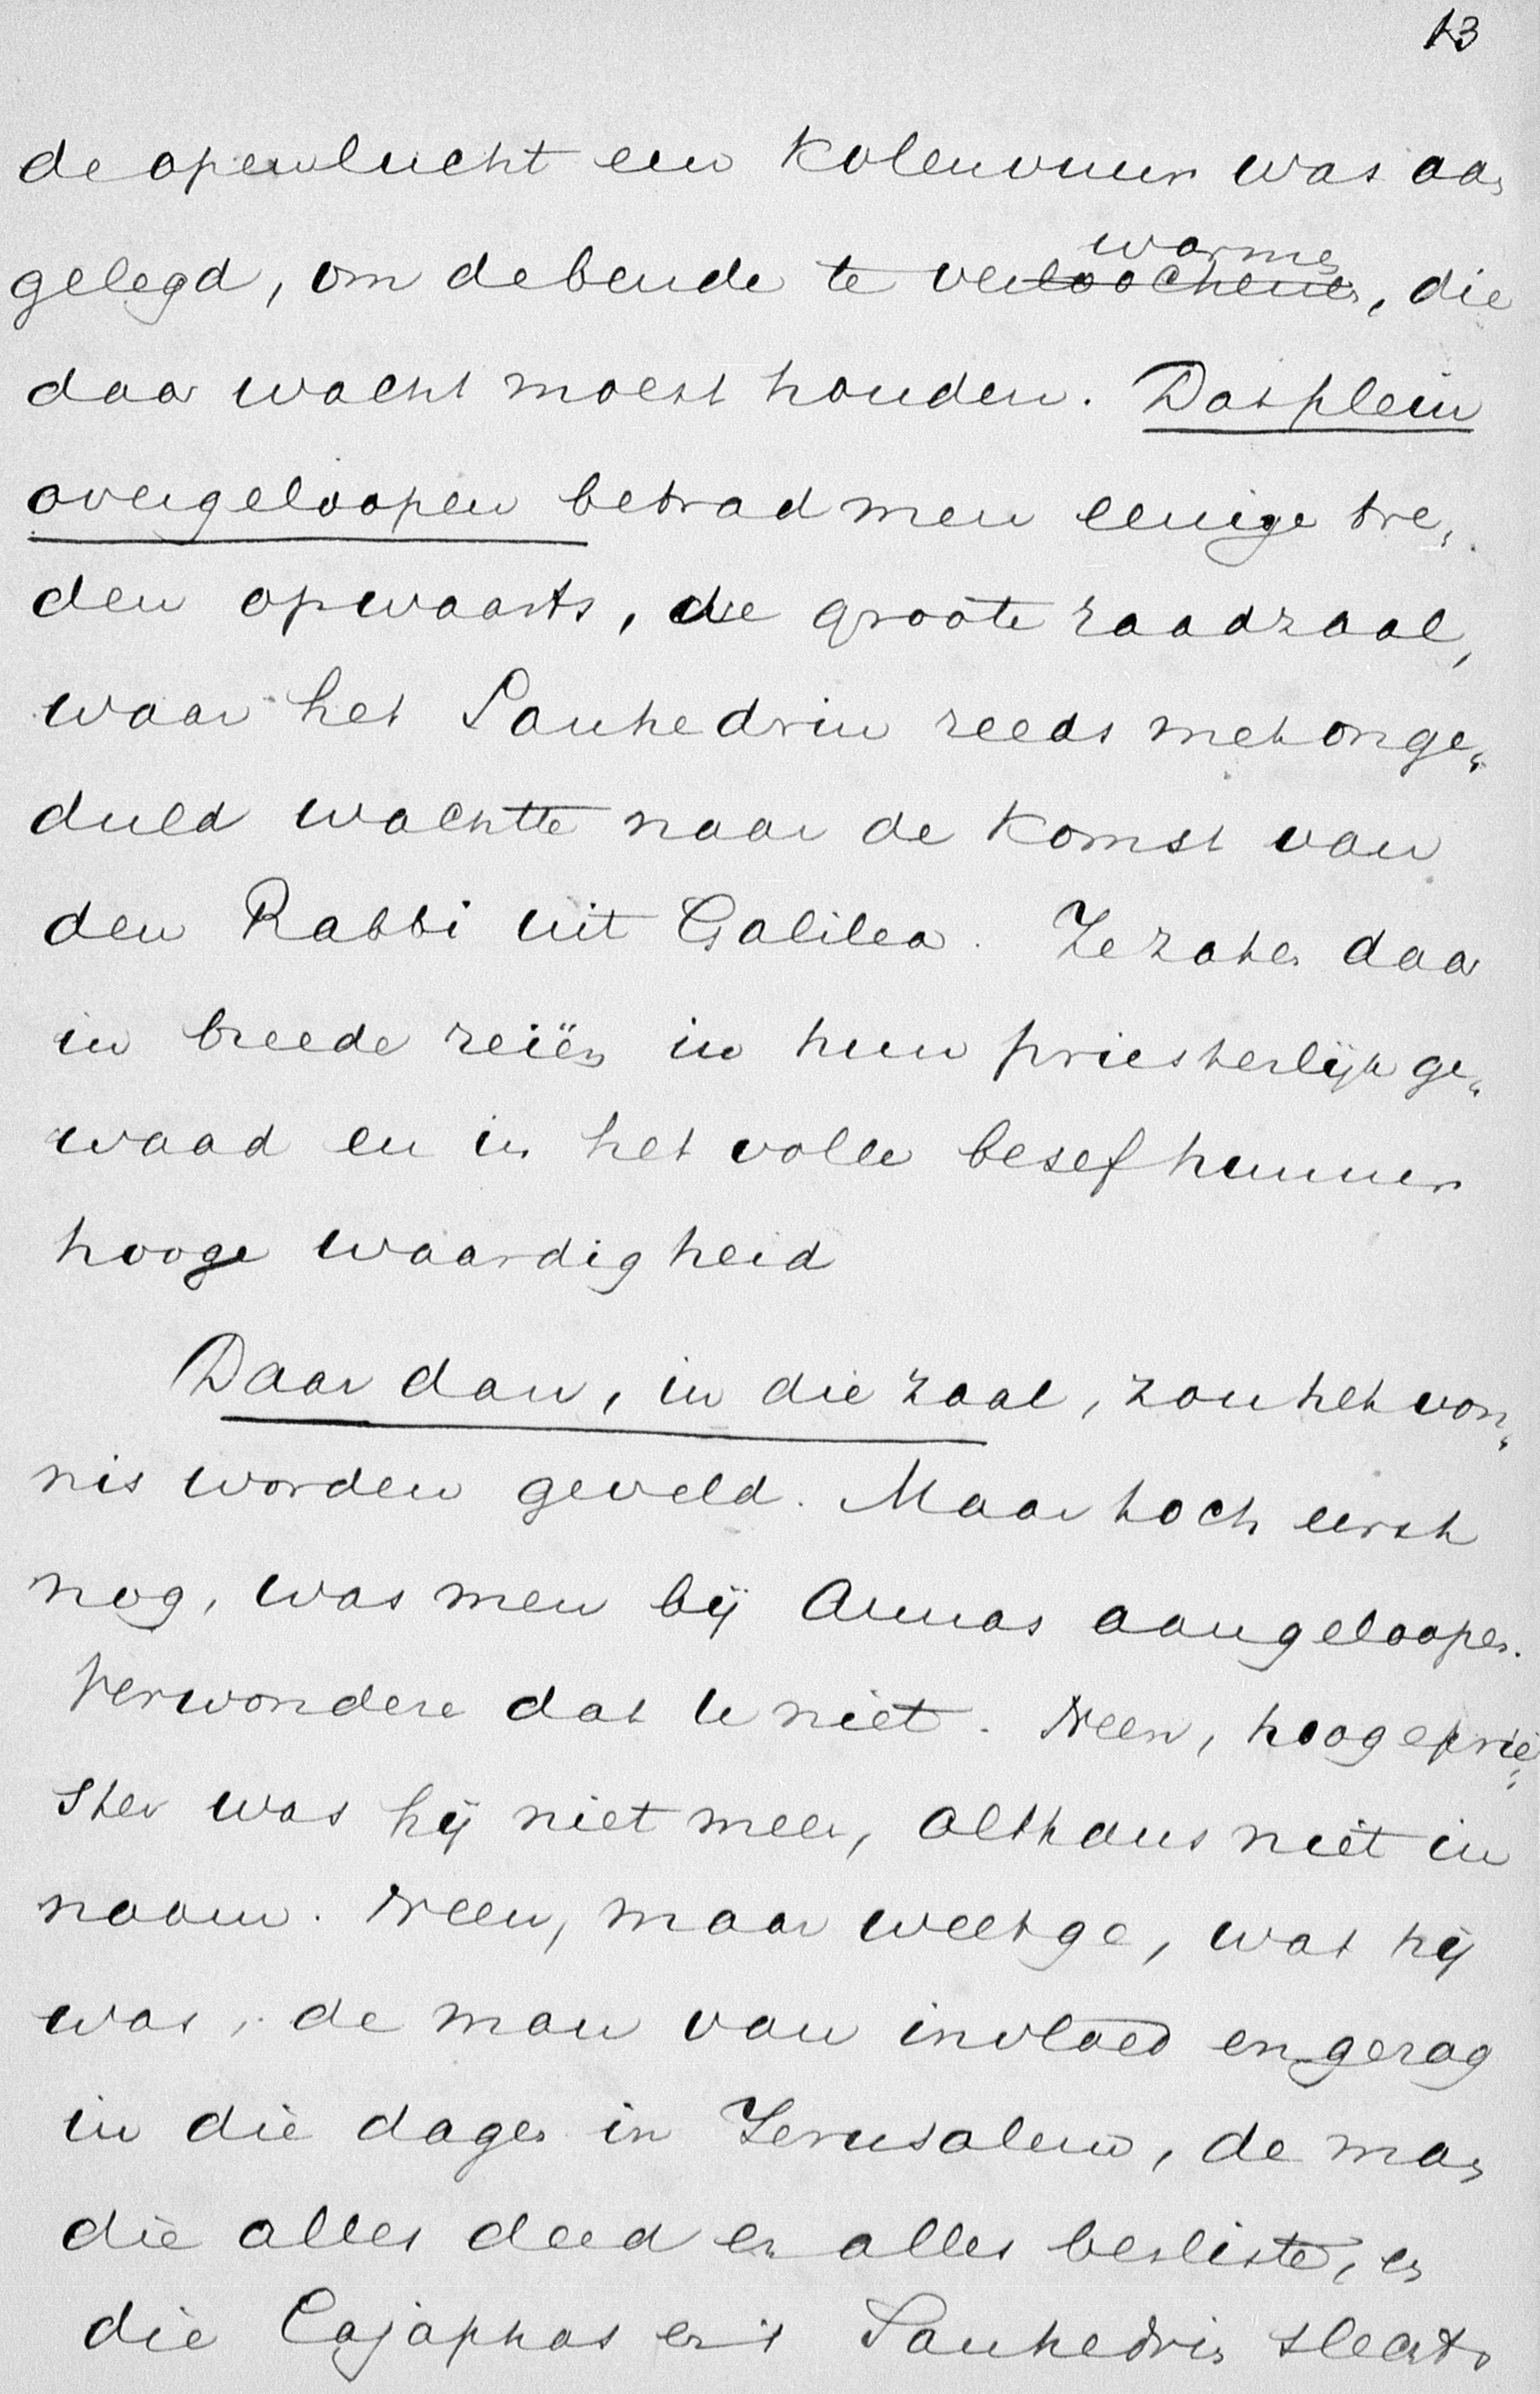 13
de openlucht een kolenvuur was aan
gelegd, om de bende te verloochenen warmen, die
daar wacht moest houden. Dat plein
overgeloopen betrad men eenige tre„
den opwaarts, de groote raadzaal,
waar het Sanhedrin reeds met onge„
duld wachtte naar de komst van
den Rabbi uit Galilea. Ze zaten daar
in breede reiën in hun priesterlijk ge„
waad en in het volle besef hunner
hooge waardigheid
Daar dan, in die zaal, zou het von„
nis worden geveld. Maar toch eerst
nog, was men bij Annas aangeloopen.
Verwondere dat u niet. Neen, hoogeprie„
ster was hij niet meer, althans niet in
naam. Neen, maar weet ge, wat hij
was, de man van invloed en gezag
in die dagen in Jerusalem, de man
die alles deed en alles besliste, en
die Cajaphas en 't Sanhedrin slechts